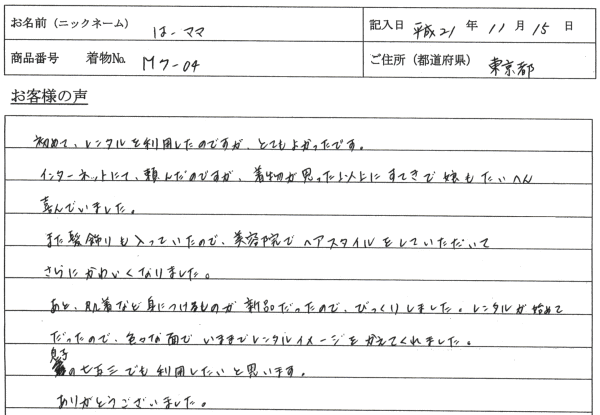 お名前（ニックネーム） はーママ 記入日 平成21年11月15日
商品番号 着物No. M7-04 ご住所（都道府県） 東京都
お客様の声
初めて、レンタルを利用したのですが、とてもよかったです。
インターネットにて、頼んだのですが、着物が思った以上にすてきで娘もたいへん
喜んでいました。
また髪飾りも入っていたので、美容院でヘアスタイルをしていただいて
さらにかわいくなりました。
あと、肌着など身につけるものが新品だったので、びっくりしました。レンタルが始めて
だったので、色々な面でいままでレンタルイメージをかえてくれました。
息子の七五三でも利用したいと思います。
ありがとうございました。